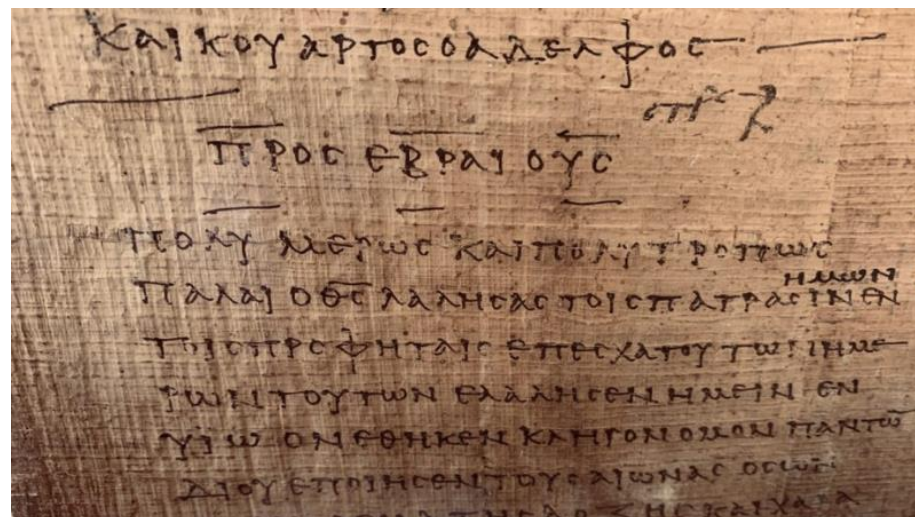 ΚΑΙ ΚΟΥΑΡΤΟϹ Ο ΑΔΕΛΦΟϹ
ΠΡΟϹ ΕΒΡΑΙΟΥϹ
ΠΟΛΥΜΕΡΩϹ ΚΑΙ ΠΟΛΥΤΡΟΠΩϹ
ΗΜΩΝ
ΠΑΛΑΙ Ο Θ̅Ϲ̅ ΛΑΛΗϹΑϹ ΤΟΙϹ ΠΑΤΡΑϹΙΝ ΕΝ
ΤΟΙϹ ΠΡΟΦΗΤΑΙϹ ΕΠ ΕϹΧΑΤΟΥ ΤΩΝ ΗΜΕ
ΡΩΝ ΤΟΥΤΩΝ ΕΛΑΛΗϹΕΝ ΗΜΕΙΝ ΕΝ
ΥΙΩ ΟΝ ΕΘΗΚΕΝ ΚΛΗΡΟΝΟΜΟΝ ΠΑΝΤΩ̅
ΔΙ ΟΥ ΕΠΟΙΗϹΕΝ ΤΟΥϹ ΑΙΩΝΑϹ ΟϹ ΩΝ
ΚΑΙ ΧΑΡΑ